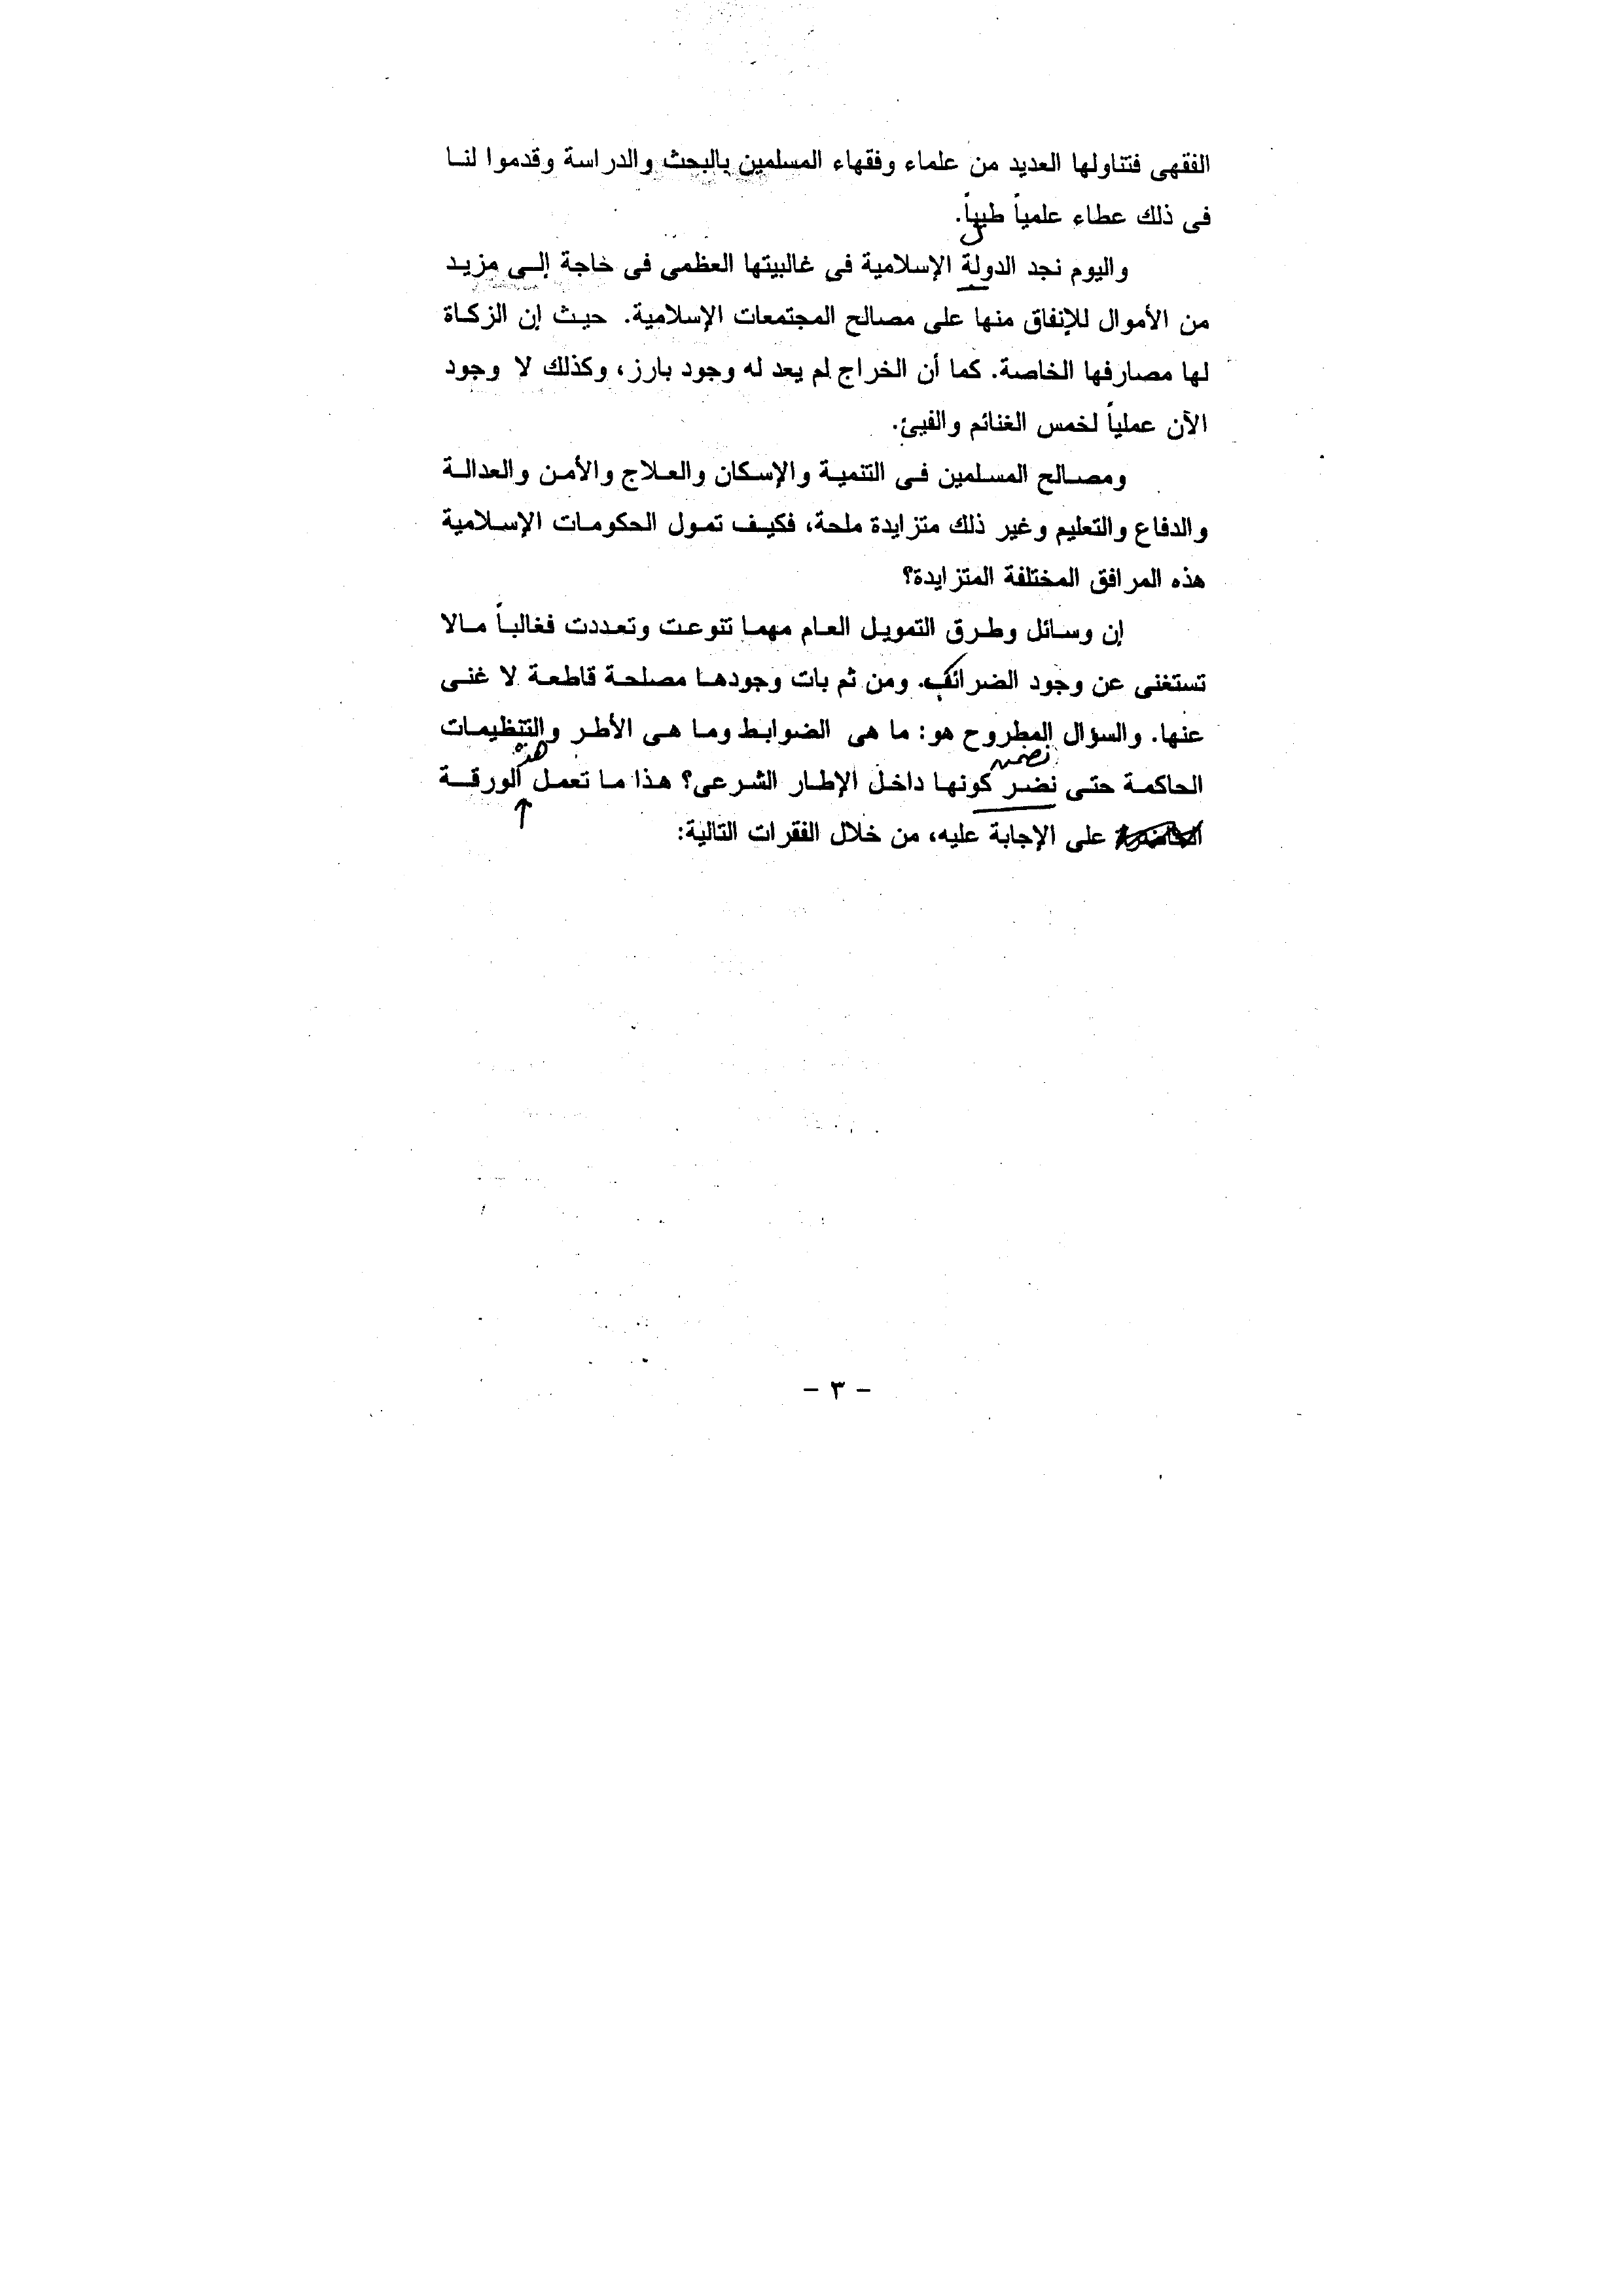 الفقهى فتناولها العديد من علماء وفقهاء المسلمين بالبحث والدراسة وقدموا لنا
فى ذلك عطاء علمياً طيباً.
واليوم نجد الدولة الإسلامية فى غالبيتها العظمى فى حاجة إلى مزيد
من الأموال للإنفاق منها على مصالح المجتمعات الإسلامية. حيث إن الزكاة
لها مصارفها الخاصة. كما أن الخراج لم يعد له وجود بارز، وكذلك لا وجود
الآن عملياً لخمس الغنائم والفيئ.
ومصالح المسلمين فى التنمية والإسكان والعلاج والأمن والعدالة
والدفاع والتعليم وغير ذلك متزايدة ملحة، فكيف تمول الحكومات الإسلامية
هذه المرافق المختلفة المتزايدة؟
إن وسائل وطرق التمويل العام مهما تنوعت وتعددت فغالباً مالا
تستغنى عن وجود الضرائب. ومن ثم بات وجودها مصلحة قاطعة لا غنى
عنها. والسؤال المطروح هو: ما هى الضوابط وما هى الأطر والتنظيمات
نضمن هذه
الحاكمة حتى نضر كونها داخل الإطار الشرعى؟ هذا ما تعمل الورقة
على الإجابة عليه، من خلال الفقرات التالية:
- ٣ -